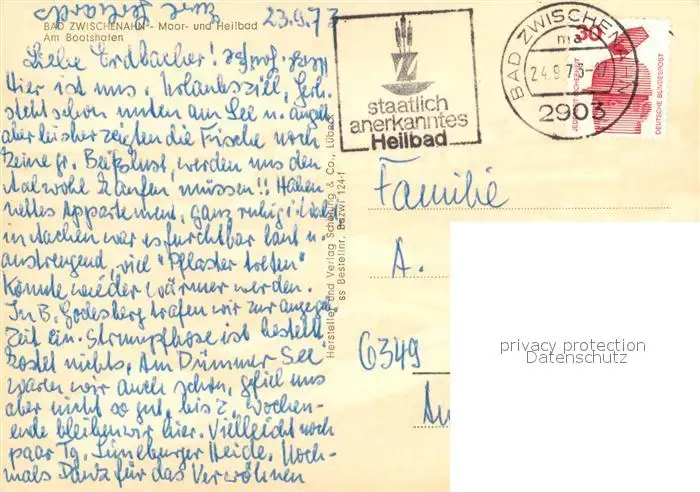 23.9.73
BAD ZWISCHENAHN - Moor- und Heilbad
Am Bootshafen
Liebe Erdbacher!
Hier ist uns. Urlaubsziel, Gerh.
steht schon unten am See u. angelt
aber leider zeigten die Fische noch
keine gr. Beißlust, werden uns den
Aal wohl kaufen müssen!! Haben
nettes Appartement, ganz ruhig
in Aachen war es furchtbar laut u.
anstrengend, viel "Pflaster treten"
Könnte wieder wärmer werden.
In B. Godesberg trafen wir zur angegeb.
Zeit ein. Strumpfhose ist bestellt
kostet nichts. Am Dümmer See
waren wir auch schon, gefiel uns
aber nicht so gut, bis 2. Wochen-
ende bleiben wir hier. Vielleicht noch
paar Tg. Lüneburger Heide. Noch-
mals Dank für das Verwöhnen
Hersteller und Verlag Schöning & Co., Lübeck
ss Bestellnr. Bazwi 124-f
Z
staatlich
anerkanntes
Heilbad
BAD ZWISCHENAHN
ma
24.9.73
2903
30
JEDERZEIT SICHERHEIT
DEUTSCHE BUNDESPOST
Familie
A.
6349
privacy protection
Datenschutz